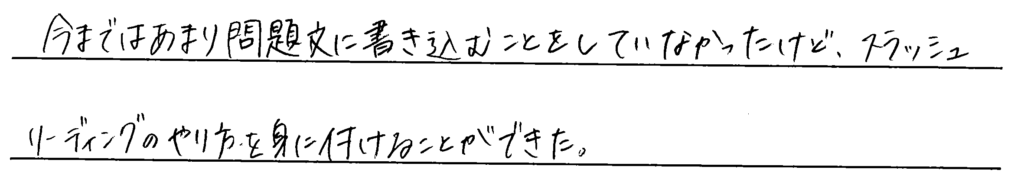 今まではあまり問題文に書き込むことをしていなかったけど、スラッシュ
リーディングのやり方を身に付けることができた。